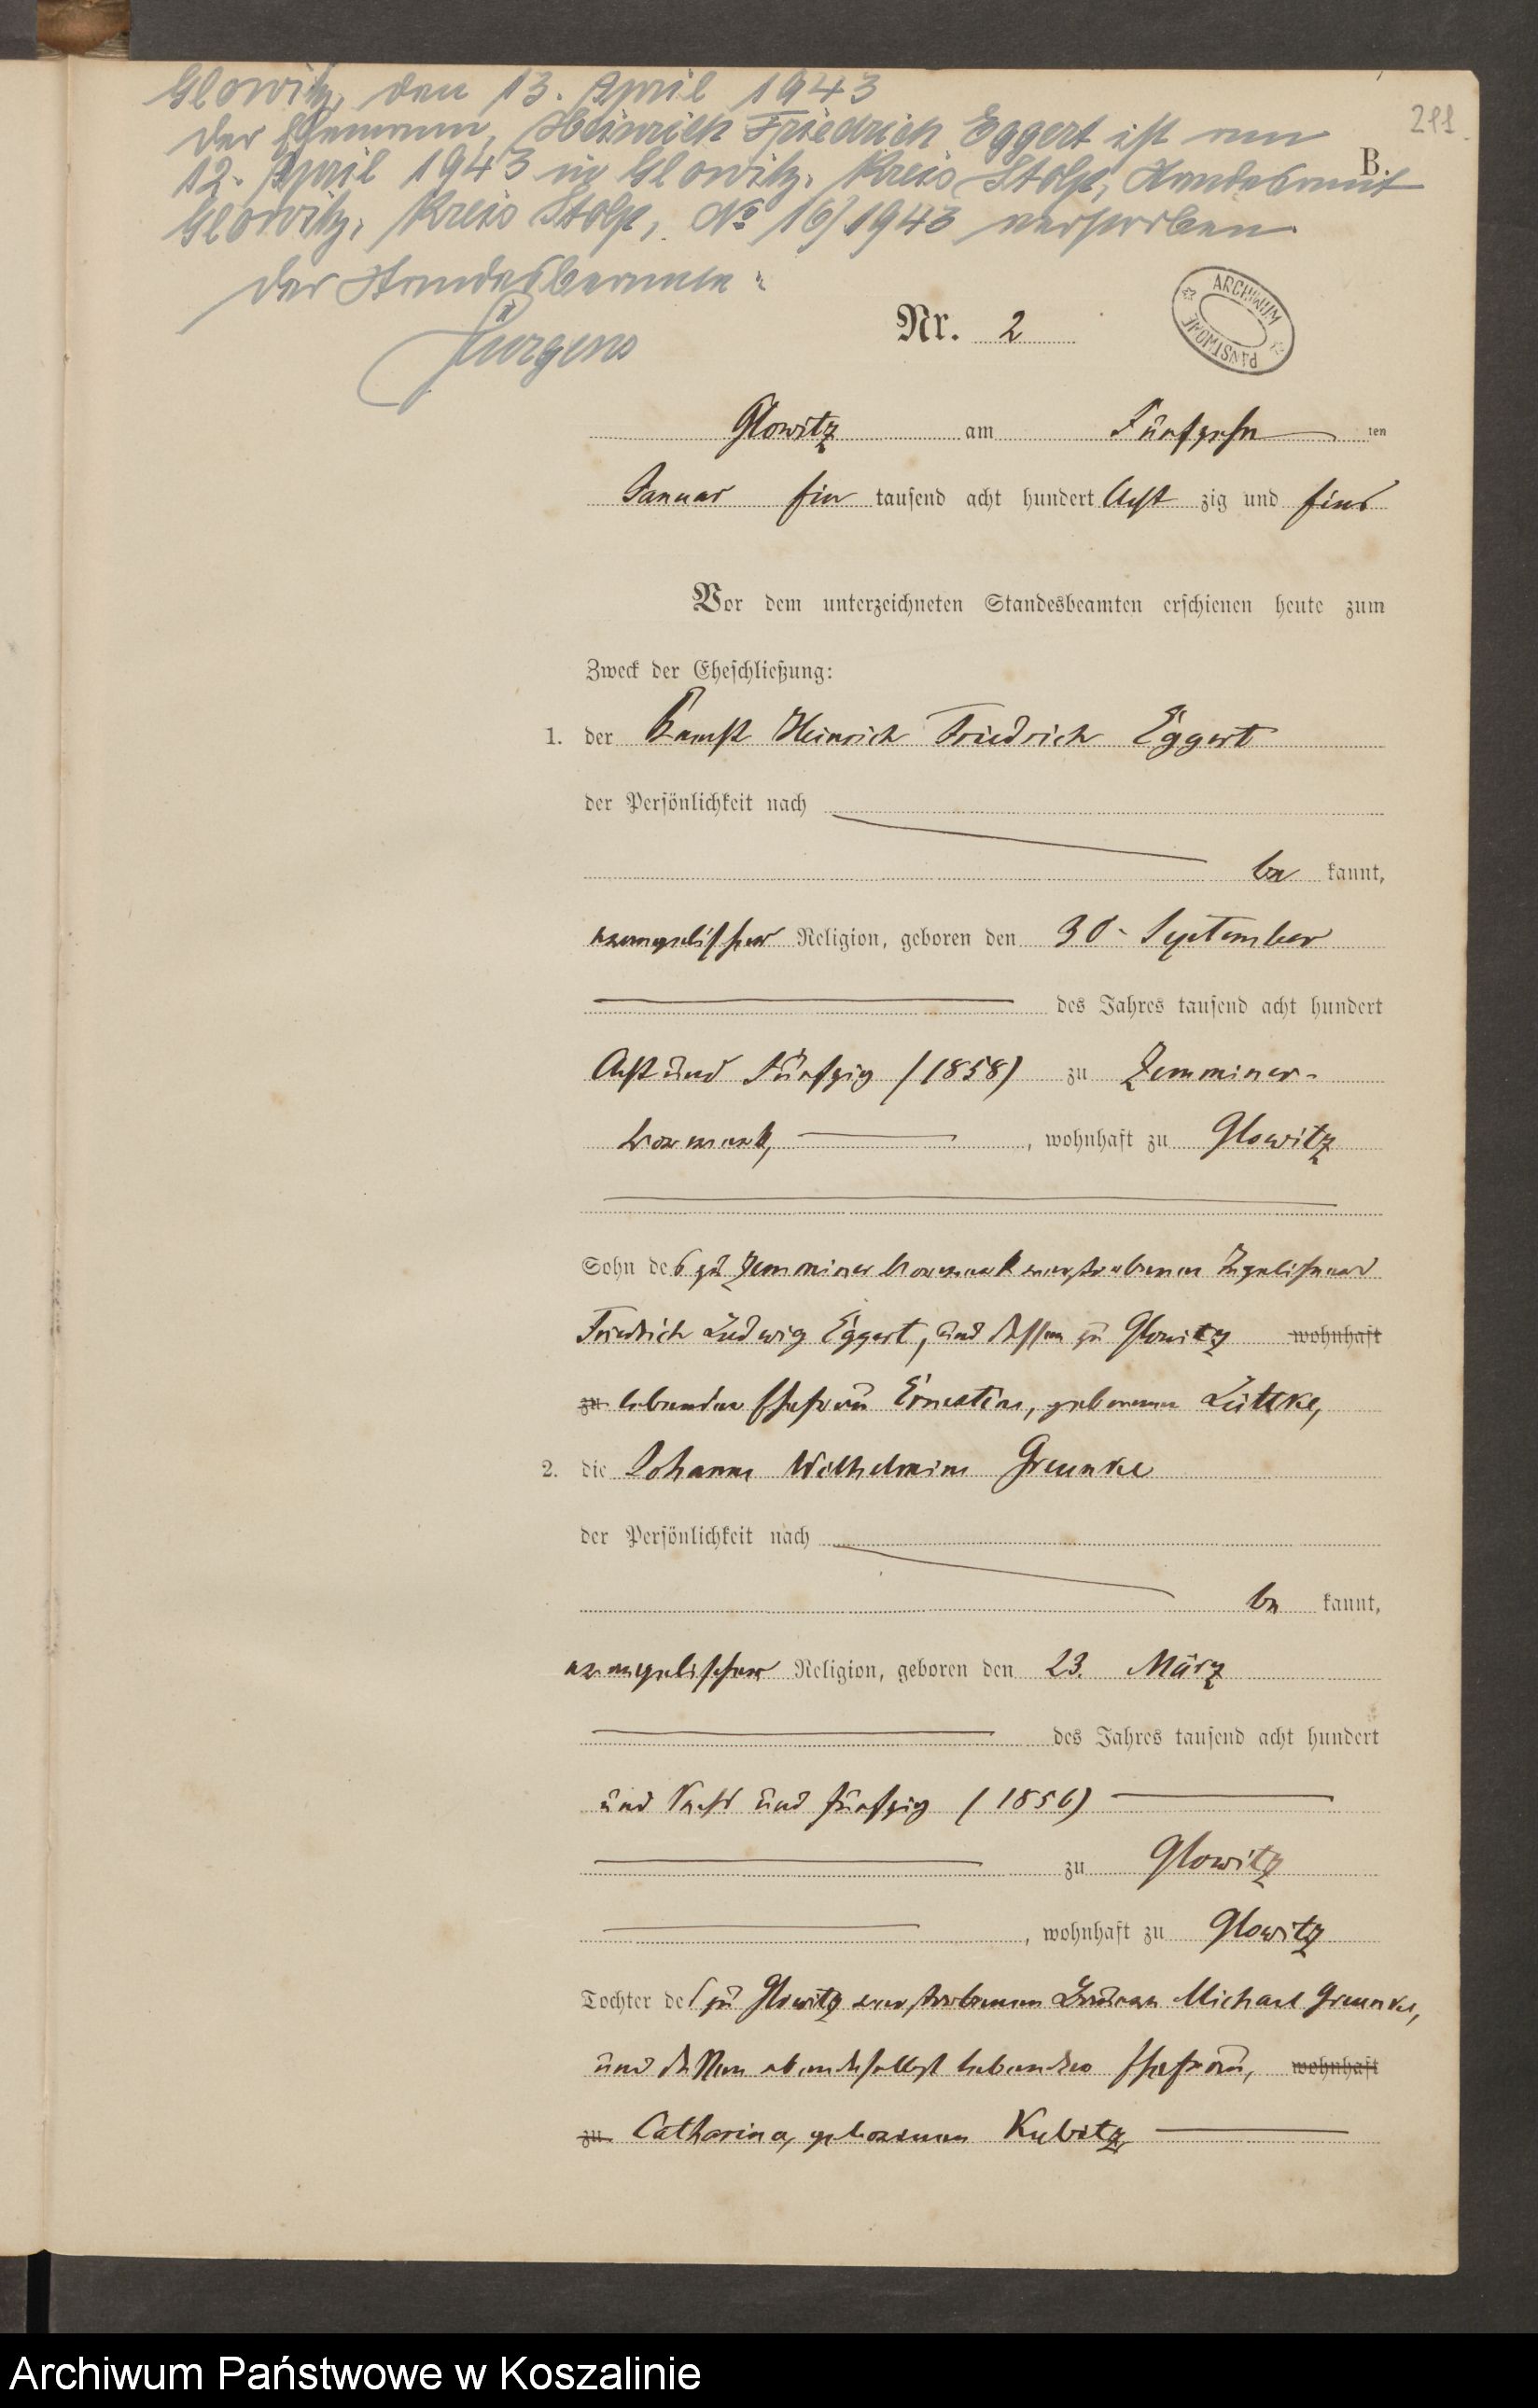 Glowitz, den 13. April 1943
Der Ehemann, Heinrich Friedrich Eggert ist am
291
12. April 1943 in Glowitz, Kreis Stolp, Standesamt
B.
Glowitz, Kreis Stolp, No 16/1943 verstorben.
Der Standesbeamte:
Jürgens
Nr. 2
ARCHIWUM PAŃSTWOWE
Glowitz am Fünfzehn ten
Januar Ein tausend acht hundert Acht zig und Eins
Vor dem unterzeichneten Standesbeamten erschienen heute zum
Zweck der Eheschließung:
1. der Knecht Heinrich Friedrich Eggert
der Persönlichkeit nach
be kannt,
evangelischer Religion, geboren den 30. September
des Jahres tausend acht hundert
Acht und Fünfzig (1858) zu Zemminer-
, wohnhaft zu Glowitz
Sohn des zu Zemminer verstorbenen
Friedrich Ludwig Eggert, und dessen zu Glowitz wohnhaft
zu lebender Ehefrau Ernestine, geborenen Lüttke,
2. die Johanne Wilhelmine Greunke
der Persönlichkeit nach
be kannt,
evangelischer Religion, geboren den 23. März
des Jahres tausend acht hundert
und Sechs und fünfzig (1856)
zu Glowitz
, wohnhaft zu Glowitz
Tochter des zu Glowitz verstorbenen Michael Greunke,
und dessen ebendaselbst lebenden Ehefrau, wohnhaft
zu Catharina, geborenen Kubitz
Archiwum Państwowe w Koszalinie